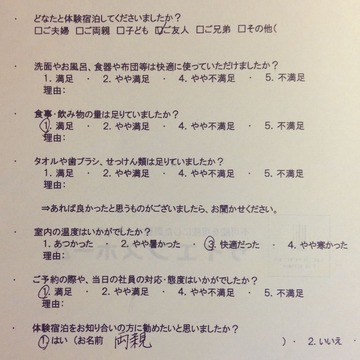 ・ どなたと体験宿泊してくださいましたか？
□ご夫婦 □ご両親 □子ども ☑ご友人 □ご兄弟 □その他(
・ 洗面やお風呂、食器や布団等は快適に使っていただけましたか？
1. 満足 ・ 2. やや満足 ・ 4. やや不満足 ・ 5. 不満足
理由:
・ 食事・飲み物の量は足りていましたか？
①. 満足 ・ 2. やや満足 ・ 4. やや不満足 ・ 5. 不満足
理由:
・ タオルや歯ブラシ、せっけん類は足りていましたか？
1. 満足 ・ 2. やや満足 ・ 4. やや不満足 ・ 5. 不満足
理由:
⇒あれば良かったと思うものがございましたら、お聞かせください。
・ 室内の温度はいかがでしたか？
1. あつかった ・ 2. やや暑かった ・ ③. 快適だった ・ 4. やや寒かった
理由:
・ ご予約の際や、当日の社員の対応・態度はいかがでしたか？
①. 満足 ・ 2. やや満足 ・ 4. やや不満足 ・ 5. 不満足
理由:
・ 体験宿泊をお知り合いの方に勧めたいと思いましたか？
①はい (お名前 両親 ) ・ 2. いいえ ・